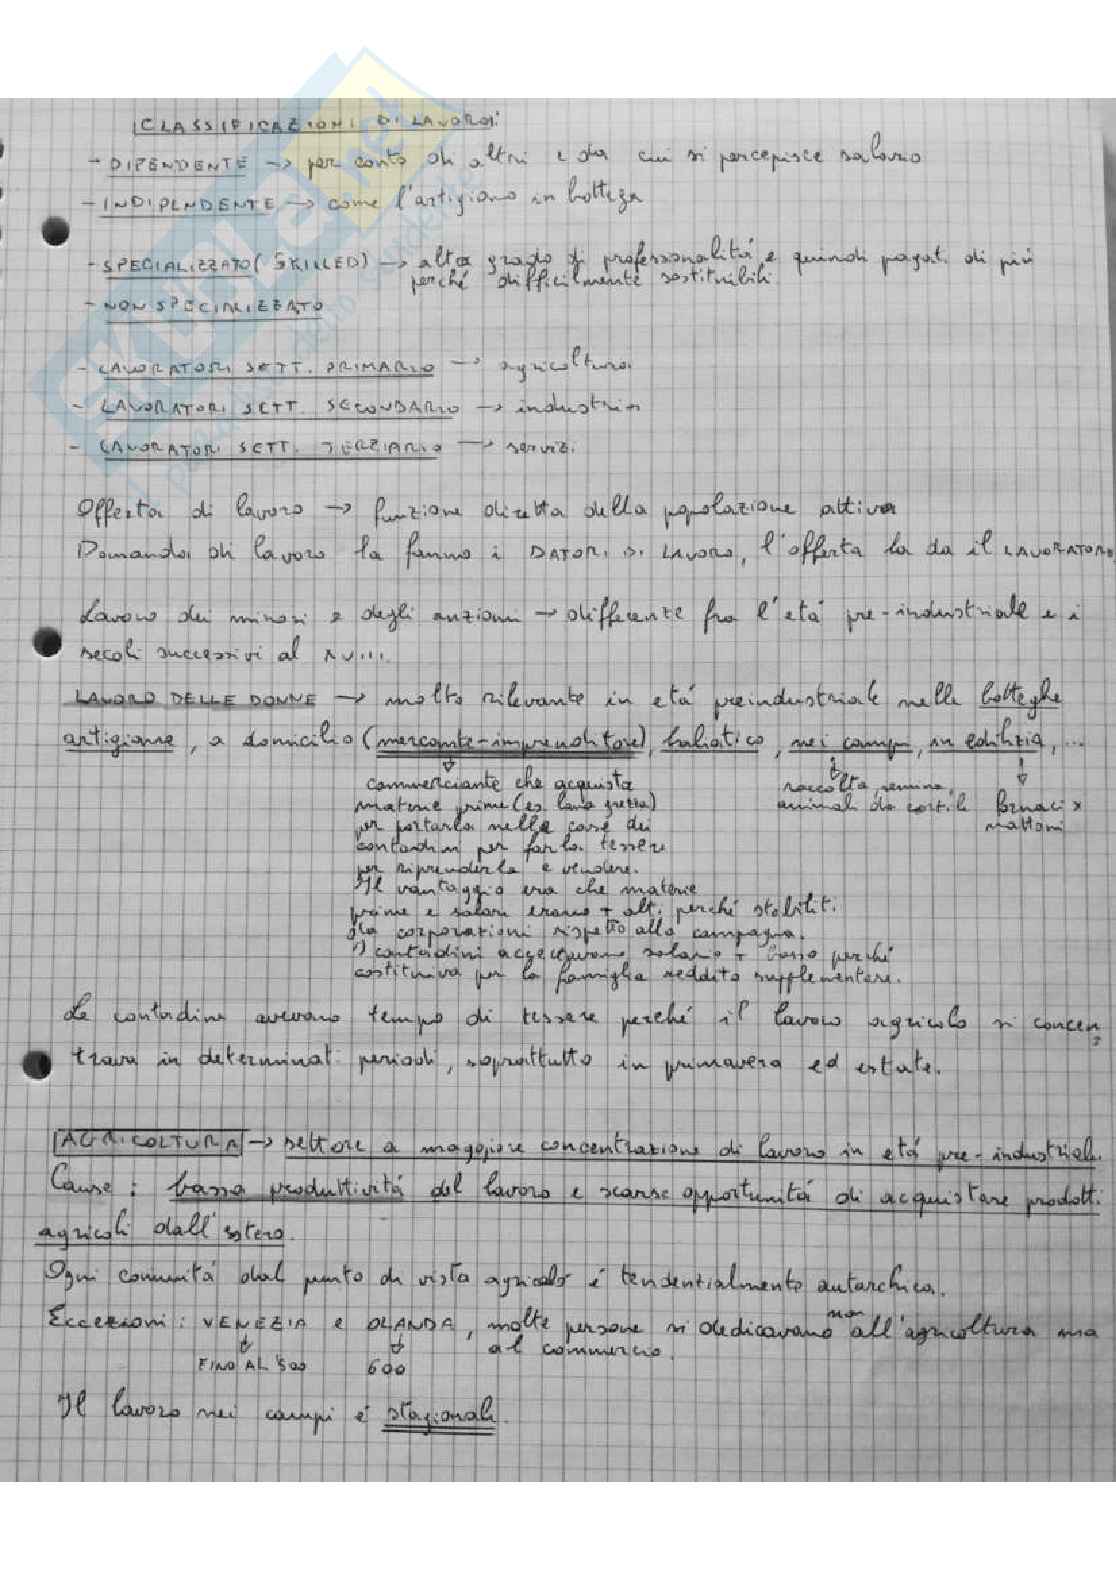 CLASSIFICAZIONI DI LAVORO:
- DIPENDENTE → per conto di altri e da cui si percepisce salario
- INDIPENDENTE → come l'artigiano in bottega
- SPECIALIZZATO (SKILLED) → alto grado di professionalitá e quindi pagati di piú
perché difficilmente sostituibili
- NON SPECIALIZZATO
- LAVORATORI SETT. PRIMARIO → agricoltura
- LAVORATORI SETT. SECONDARIO → industria
- LAVORATORI SETT. TERZIARIO → servizi
Offerta di lavoro → funzione diretta della popolazione attiva
Domanda di lavoro la fanno i DATORI DI LAVORO, l'offerta la da il LAVORATORE
Lavoro dei minori e degli anziani → differenze fra l'etá pre-industriale e i
secoli successivi al XVIII.
LAVORO DELLE DONNE → molto rilevante in etá preindustriale nelle botteghe
artigiane, a domicilio (mercante-imprenditore), baliatico, nei campi, in edilizia, ...
commerciante che acquista
materie prime (es. lana grezza)
per portarla nelle case dei
contadini per farla tessere
per riprenderla e vendere.
Il vantaggio era che materie
prime e salari erano + alti perché stabiliti
da corporazioni rispetto alla campagna.
I contadini accettavano salario + basso perché
costituiva per la famiglia reddito supplementare.
raccolta, semina,
animali da cortile
Fornaci x
mattoni
Le contadine avevano tempo di tessere perché il lavoro agricolo si concen
trava in determinati periodi, soprattutto in primavera ed estate.
AGRICOLTURA → settore a maggiore concentrazione di lavoro in etá pre-industriale.
Cause: bassa produttivitá del lavoro e scarse opportunitá di acquistare prodotti
agricoli dall'estero.
Ogni comunitá dal punto di vista agricolo é tendenzialmente autarchica.
Eccezioni: VENEZIA e OLANDA, molte persone si dedicavano non all'agricoltura ma
al commercio.
FINO AL '500
600
Il lavoro nei campi é stagionale.